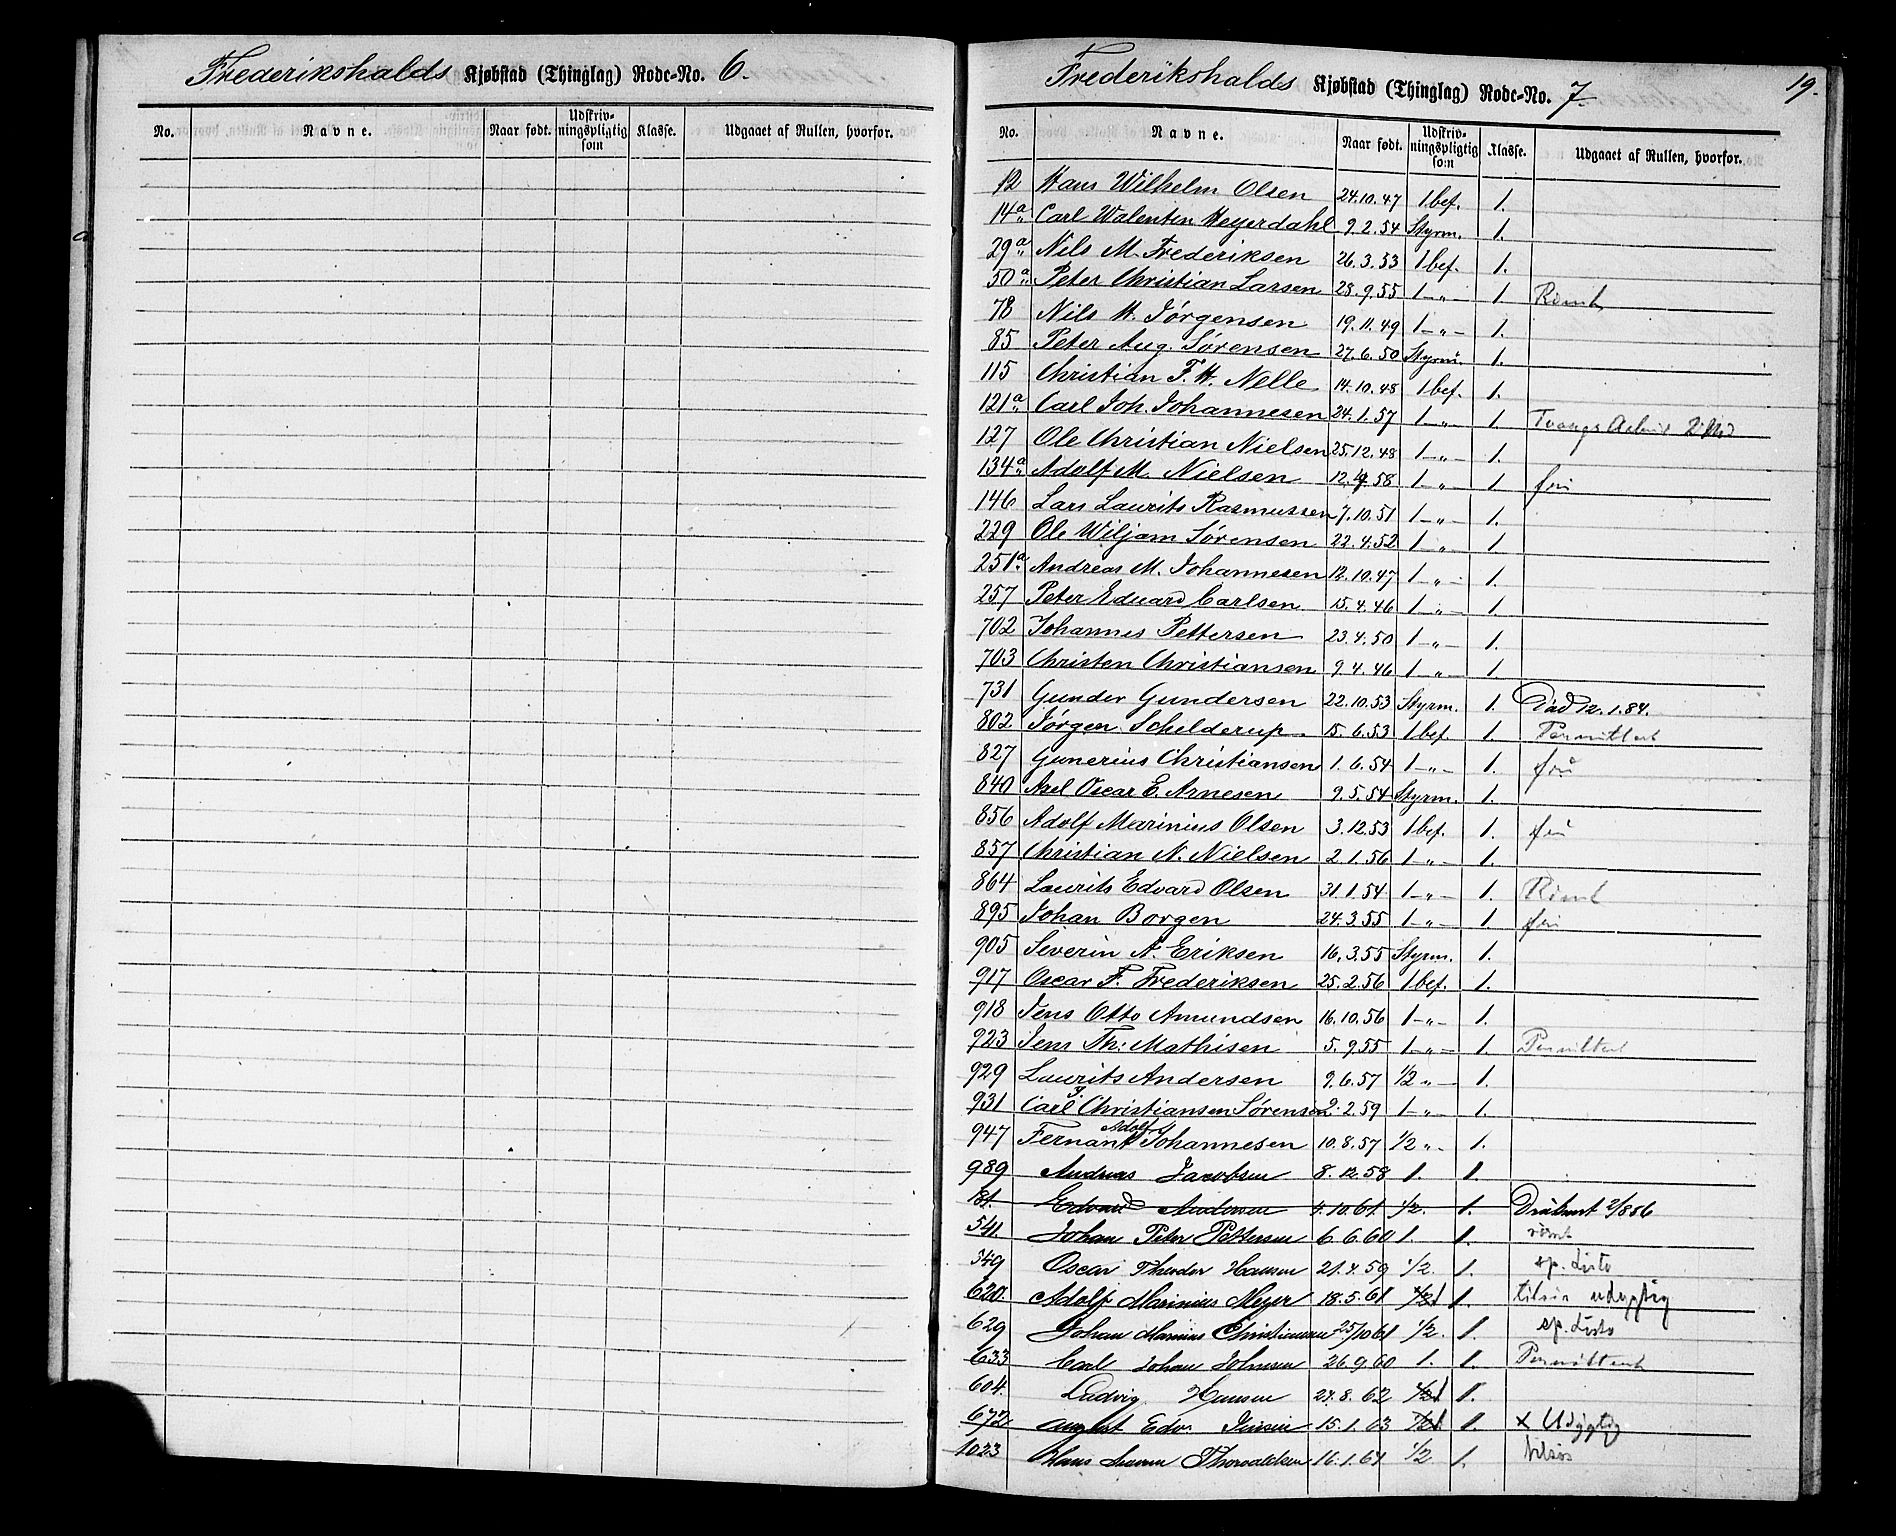 Frederikshalds Kjøbstad (Thinglag) Rode-No. 6.
No. Navne. Naar født. Udskriv-ningspligtig som Klasse. Udgaaet af Rullen, hvorfor.
Frederikshalds Kjøbstad (Thinglag) Rode-No. 7. 19.
No. Navne. Naar født. Udskriv-ningspligtig som Klasse. Udgaaet af Rullen, hvorfor.
12 Hans Wilhelm Olsen 24.10.47 1.bef. 1.
14a Carl Walentin Heyerdahl 9.2.54 Styrm. 1.
29a Nils M. Frederiksen 26.3.53 1 bef. 1.
50a Peter Christian Larsen 28.9.55 1-"- 1. Römt
78 Nils H. Jørgensen 19.11.49 1-"- 1.
85 Peter Aug. Sørensen 27.6.50 Styrm. 1.
115 Christian F. H. Nelle 14.10.48 1 bef. 1.
121a Carl Joh. Johannesen 24.1.57 1-"- 1. Tvangs
127 Ole Christian Nielsen 25.12.48 1-"- 1.
134a Adolf M. Nielsen 12.4.58 1-"- 1. fri
146 Lars Laurits Rasmussen 7.10.51 1-"- 1.
229 Ole Wiljam Sørensen 22.4.52 1-"- 1.
251a Andreas M. Johannesen 12.10.47 1-"- 1.
257 Peter Eduard Carlsen 15.4.46 1-"- 1.
702 Johannes Pettersen 23.4.50 1-"- 1.
703 Christen Christiansen 9.4.46 1-"- 1
731 Gunder Gundersen 22.10.53 Styrm. 1. Død 12.1.84.
802 Jørgen Schelderup. 15.6.53 1 bef. 1. Permittert
827 Gunerius Christiansen 1.6.54 1-"- 1. fri
840 Axel Oscar E. Arnesen 9.5.54 Styrm. 1.
856 Adolf Marinius Olsen 3.12.53 1 bef. 1. fri
857 Christian N. Nielsen 2.1.56 1-"- 1.
864 Laurits Edvard Olsen 31.1.54 1-"- 1. Römt
895 Johan Borgen 24.3.55 1-"- 1 fri
905 Severin A. Eriksen 16.3.55 Styrm. 1.
917 Oscar F. Frederiksen 25.2.56 1 bef. 1.
918 Jens Otto Amundsen 16.10.56 1-"- 1.
923 Jens Th: Mathisen 5.9.55 1-"- 1. Permittert
929 Laurits Andersen 9.6.57 1/2 "- 1.
931 Carl J. Christiansen Sørensen 2.2.59 1-"- 1.
947 Fernant Adolf Johannesen 10.8.57 1/2 "- 1.
989 Andreas Jacobsen 8.12.58 1. 1.
81. Edvard Andersen 4.10.61. 1/2. 1.
541. Johan Peter Pettersen 6.6.60 1. 1. römt
549 Oscar Theodor Hansen 21.4.59 1/2. 1. sp. Liste
620. Adolf Marinius Meyer 18.5.61 1/2 1 1. udygtig
629 Johan Marius Christiansen 25/10 61 1/2. 1. sp. Liste
633 Carl Johan Johnsen 26.9.60 1. 1. Permittert
604. Ludvig Hansen 27.8.62 1/2 1 1.
672 August Edv. Jensen 15.1.63 1/2 1 1. x Udygtig
1023 Hans Thorvaldsen 16.1.61 1/2 1. tilsøs